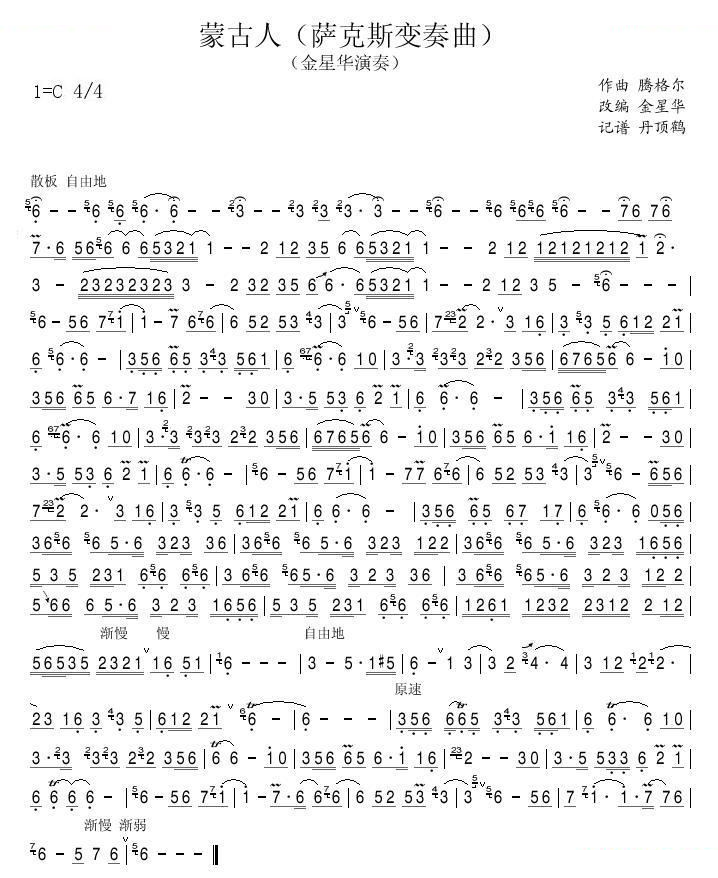 蒙古人（萨克斯变奏曲）
（金星华演奏）
1=C 4/4
作曲 腾格尔
改编 金星华
记谱 丹顶鹤
散板 自由地
6 - - 6 6 6· 6 - - 3 - - 3 3 3· 3 - - 6 - - 6 6 6 6 - - 76 76
7·6 56 6 6 65321 1 - - 2 12 35 6 65321 1 - - 2 12 12121212 1 2·
3 - 23232323 3 - 2 32 35 6 6·65321 1 - - 2 12 35 - 6 - - - |
6 - 56 7 1 | 1 - 7 6 6 | 6 52 53 3 | 3 6 - 56 | 7 2 2· 3 16 | 3 3 5 6 12 21 |
6 6·6 - | 356 65 3 3 561 | 6 6·6 10 | 3·3 3 3 2 2 356 | 67656 6 - 10 |
356 65 6·7 16 | 2 - - 30 | 3·5 53 6 21 | 6 6·6 - | 356 65 3 561 |
6 6·6 10 | 3·3 3 3 2 2 356 | 67656 6 - 10 | 356 65 6·1 16 | 2 - - 30 |
3·5 53 6 21 | 6 6·6 - | 6 - 56 7 1 | 1 - 77 6 6 | 6 52 53 3 | 3 6 - 656 |
7 2 2· 3 16 | 3 3 5 612 21 | 6 6·6 - | 356 65 67 17 | 6 6·6 056 |
36 6 6 5·6 323 36 | 36 6 6 5·6 323 122 | 36 6 6 5·6 323 1656 |
535 231 6 6 6 6 | 3 6 6 65·6 323 36 | 3 6 6 65·6 323 122 |
566 6 5·6 323 1656 | 535 231 6 6 6 6 | 1261 1232 2312 212 |
渐慢 慢 自由地
56535 2321 16 51 | 6 - - - | 3 - 5·1#5 | 6 - 13 | 32 4·4 | 3 12 1 2·
原速
23 16 3 3 5 | 612 21 6 - | 6 - - - | 356 665 3 3 561 | 6 6·6 10 |
3·3 3 3 2 2 356 | 6 6 - 10 | 356 65 6·1 16 | 2 - - 30 | 3·5 533 6 21 |
6 6 6 6 - | 6 - 56 7 1 | 1 - 7·6 6 6 | 6 52 53 3 | 3 6 - 56 | 7 1·1·7 76 |
渐慢 渐弱
6 - 5 7 6 | 6 - - - ‖